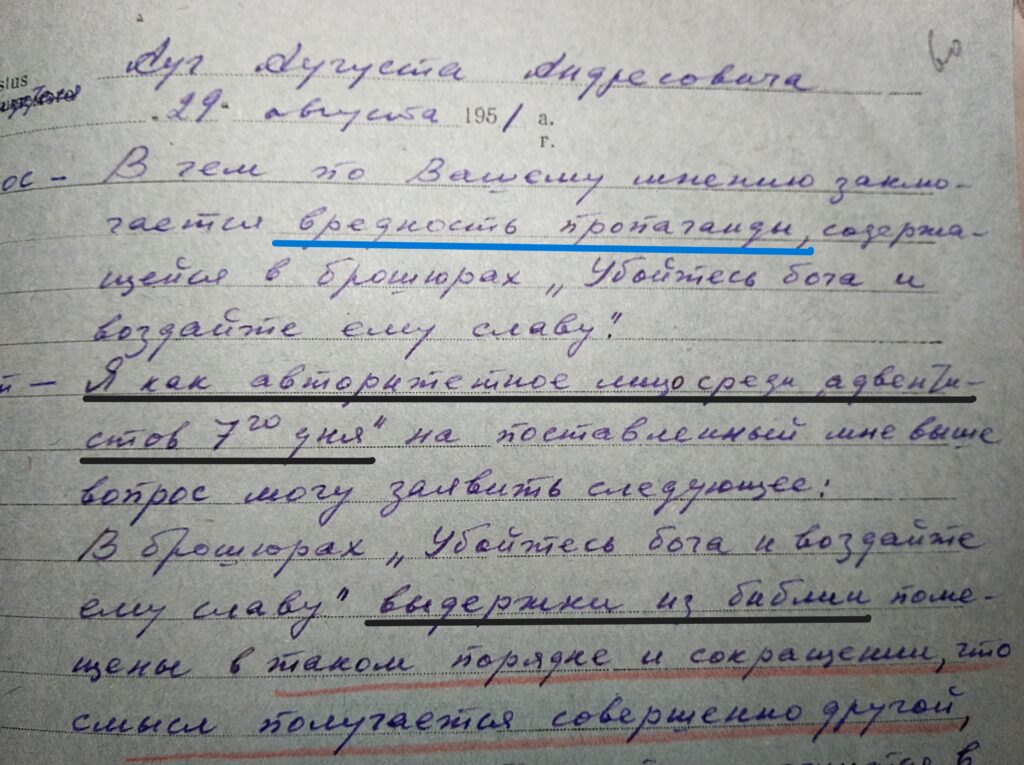 60
sius
Луг Августа Андресовича
29 августа 1951 а.
г.
ос - В чем по Вашему мнению заклю-
чается вредность пропаганды, содержа-
щейся в брошюрах „Убойтесь бога и
воздайте ему славу".
т - Я как авторитетное лицо среди „адвенти-
стов 7го дня" на поставленный мне выше
вопрос могу заявить следующее:
В брошюрах „Убойтесь бога и воздайте
ему славу" выдержки из библии поме-
щены в таком порядке и сокращении, что
смысл получается совершенно другой,
в